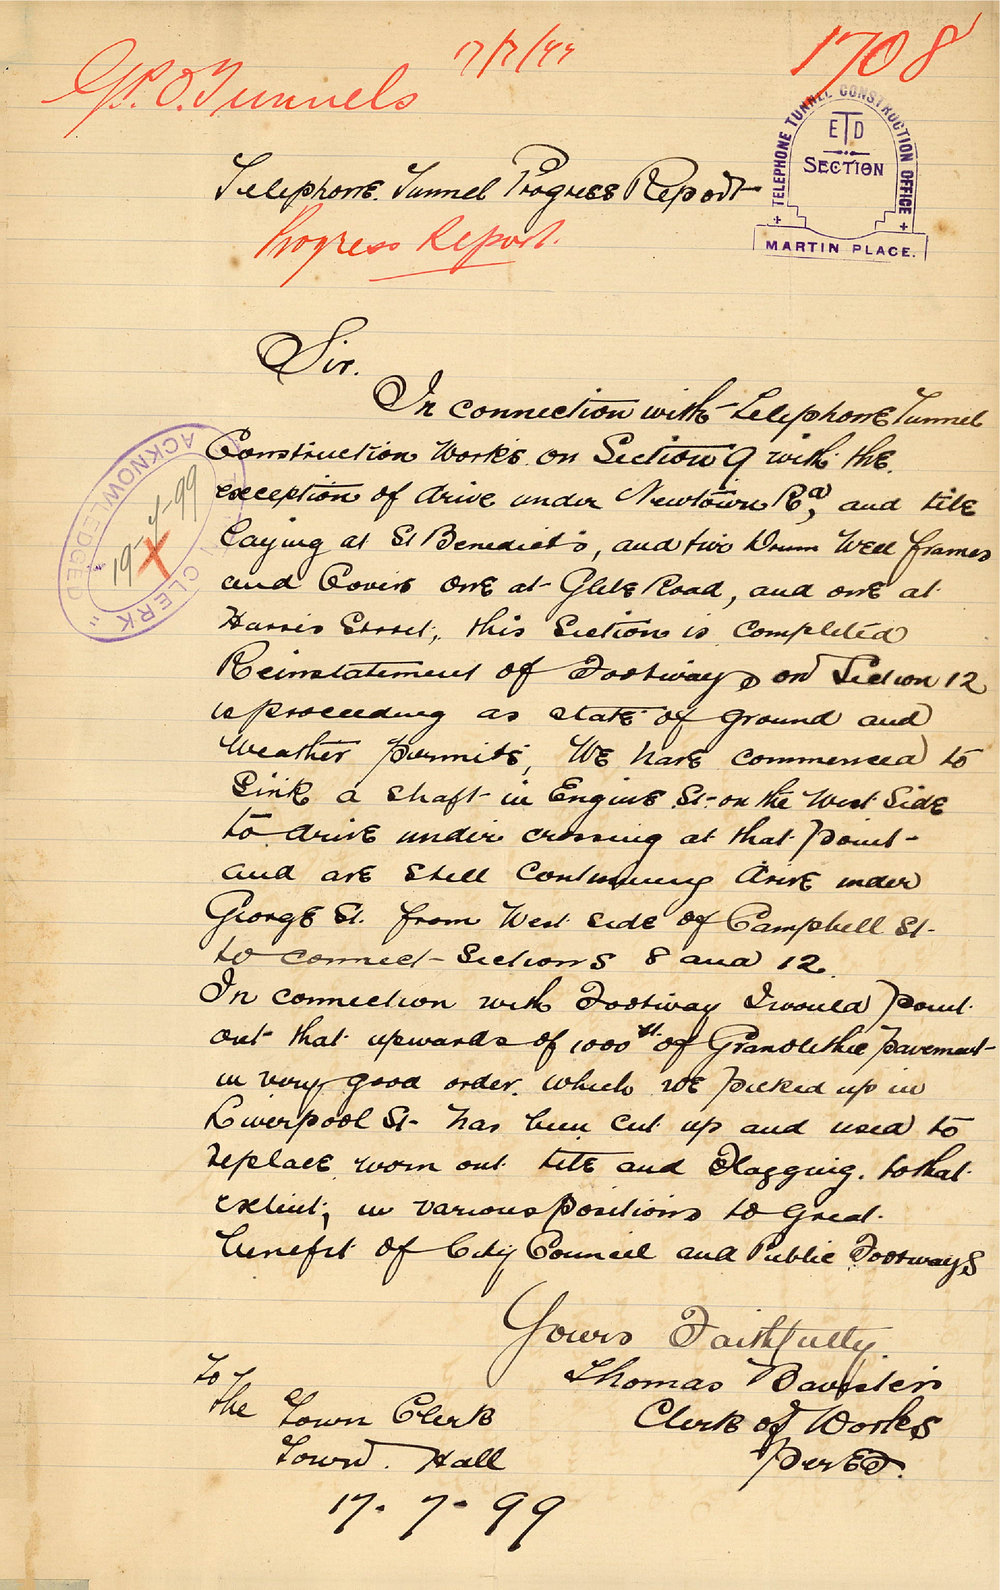 G.P.O. Tunnels
17/7/99
1708
TELEPHONE TUNNEL CONSTRUCTION OFFICE
ETD
SECTION
MARTIN PLACE.
Telephone Tunnel Progress Report
Progress Report.
Sir.
In connection with Telephone Tunnel
Construction Works on Section 9 with the
exception of drive under Newtown Rd, and tile
laying at St Benedict's, and two Drum Well frames
and Covers one at Glebe Road, and one at
Harris Street, this Section is Completed
Reinstatement of Footways on Section 12
is proceeding as state of ground and
weather permits, We have commenced to
Sink a shaft in Engine St on the West Side
to drive under crossing at that point
and are still Continuing drive under
George St. from West side of Campbell St
to connect Sections 8 and 12.
In connection with Footway I would point
out that upwards of 1000 ft of Granolithic pavement
in very good order. which we picked up in
Liverpool St has been cut up and used to
replace worn out tile and Flagging. to that
extent, in various positions to great
benefit of City Council and Public Footways
Yours Faithfully.
Thomas Bavister
Clerk of Works
Per ED.
To
the Town Clerk
Town Hall
17-7-99
ACKNOWLEDGED
CLERK
19-7-99
X